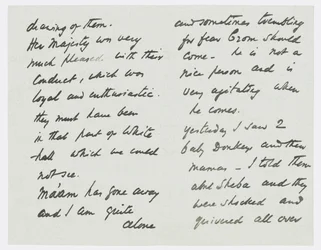 chairing of them.
Her Majesty was very
much pleased with their
Conduct, which was
loyal and enthusiastic.
they must have been
in that part of White
-hall which we could
not see.
Ma'am has gone away
and I am quite
alone
and sometimes trembling
for fear Crom should
come - he is not a
nice person and is
very agitating when
he comes.
yesterday I saw 2
baby Donkeys and their
mamas - I told them
abt Sheba and they
were shocked and
quivered all over